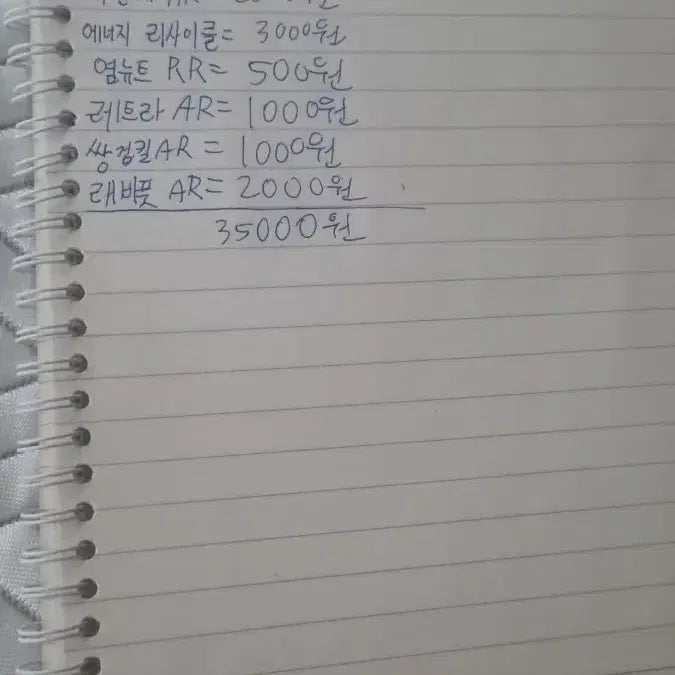 에너지 리사이클= 3000원
염뉴트 RR= 500원
레트라 AR= 1000원
쌍검킬 AR = 1000원
래비풋 AR= 2000원
35000원